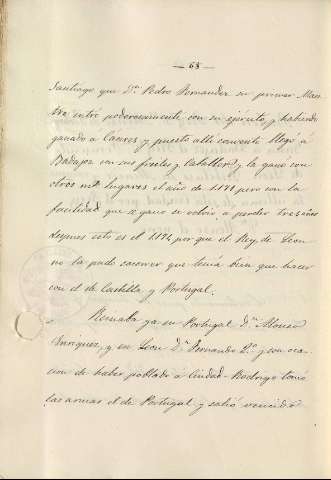 — 68 —
Santiago que Dn. Pedro Fernandez su primer Maes
tre entró poderosamente con su ejército y habiendo
ganado á Cáceres y puesto alli convento llegó á
Badajoz con sus freiles y Caballeros y la ganó con
otros mas lugares el año de 1171 pero con la
facilidad que se ganó se volvió a perder tres años
despues esto es el 1174 porque el Rey de Leon
no la pudo socorrer que tenia bien que hacer
con el de Castilla y Portugal.
Reinaba ya en Portugal Dn. Alonso
Enriquez, y en Leon Dn. Fernando 2º y con oca
cion de haber poblado á Ciudad-Rodrigo tomó
las armas el de Portugal y salió vencido